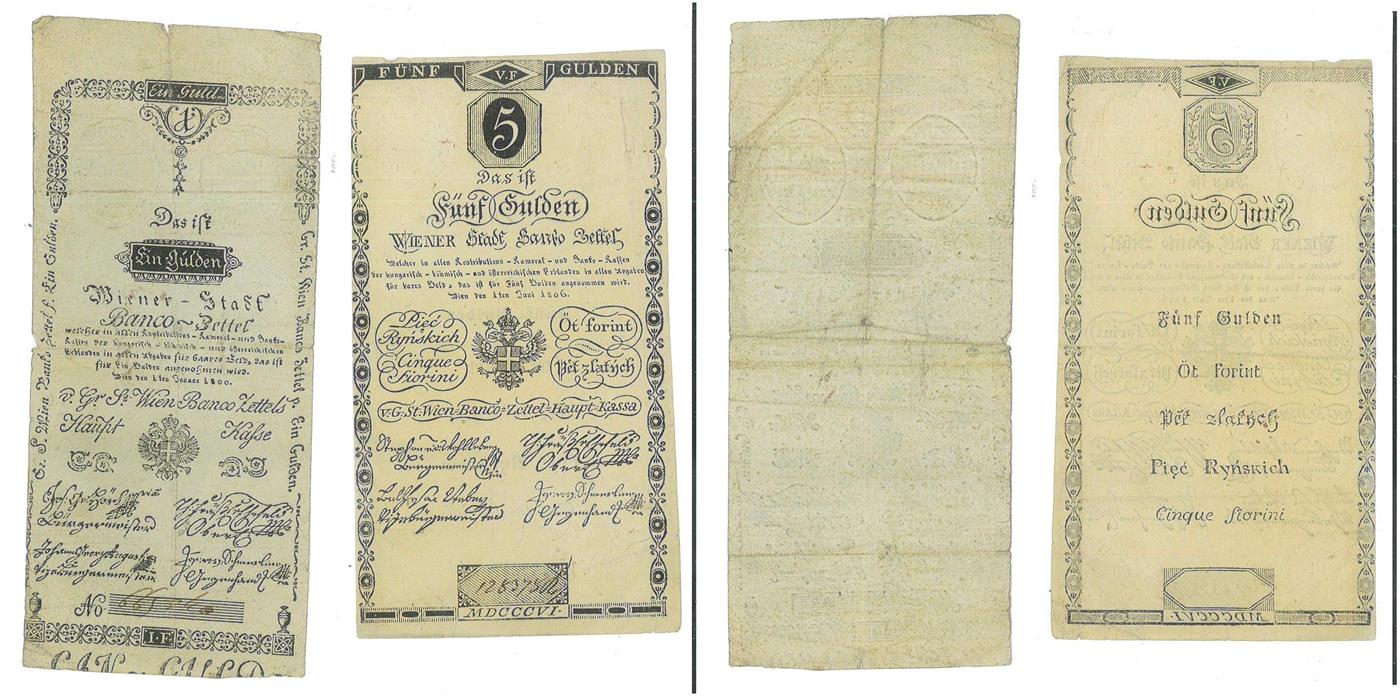 Ein Guld.
1
Das ist
Ein Gulden
Wiener-Stadt
Banco-Zettel
welcher in allen Kontributions-Kameral-und Banko-
Kassen der hungarisch-böhmisch-und österreichischen
Erblanden in allen Abgaben für baares Geld, das ist
für Ein Gulden angenommen wird.
Wien den 1ten Januar 1800.
v. Gr St. Wien Banco Zettels
Haupt Kasse
Bürgermeister
Vizebürgermeister
No
I·F
Gr. S. Wien Banko Zettel f. Ein Gulden.
Gr. St. Wien Banco Zettel p. Ein Gulden.
FÜNF V.F GULDEN
5
Das ist
Fünf Gulden
WIENER Stadt Banko Zettel
Welcher in allen Kontributions-Kameral-und Banko-Kassen
der hungarisch-böhmisch-und österreichischen Erblanden in allen Abgaben
für bares Geld, das ist für Fünf Gulden angenommen wird.
Wien den 1ten Juni 1806.
Pięć
Ryńskich
Cinque
fiorini
Öt forint
Pět zlatých
v.G.St.Wien-Banco-Zettel-Haupt-Kassa
Bürgermeister
Vizebürgermeister
MDCCCVI·
V.F
5
Fünf Gulden
Fünf Gulden
Öt forint
Pět zlatých
Pięć Ryńskich
Cinque fiorini
MDCCCVI·